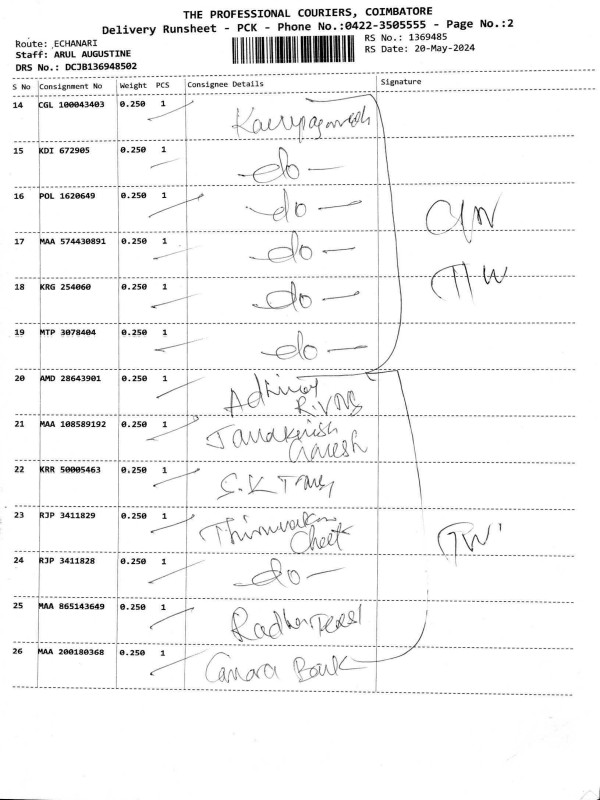 THE PROFESSIONAL COURIERS, COIMBATORE
Delivery Runsheet - PCK - Phone No.:0422-3505555 - Page No.:2
Route: ECHANARI
Staff: ARUL AUGUSTINE
DRS No.: DCJB136948502
RS No.: 1369485
RS Date: 20-May-2024
S No Consignment No Weight PCS Consignee Details Signature
14 CGL 100043403 0.250 1
15 KDI 672905 0.250 1 - do -
16 POL 1620649 0.250 1 - do -
17 MAA 574430891 0.250 1 - do -
18 KRG 254060 0.250 1 - do -
19 MTP 3078404 0.250 1 - do -
20 AMD 28643901 0.250 1
21 MAA 108589192 0.250 1
22 KRR 50005463 0.250 1 S.K
23 RJP 3411829 0.250 1
24 RJP 3411828 0.250 1 - do -
25 MAA 865143649 0.250 1
26 MAA 200180368 0.250 1 Canara Bank